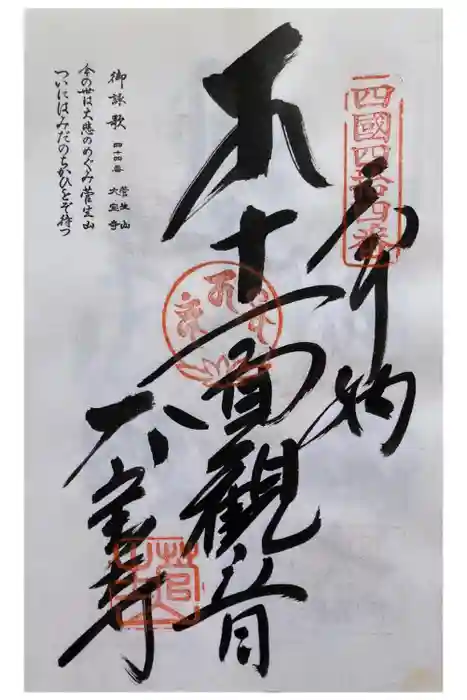 四國四拾四番
奉納
本十一面觀音
大宝寺
菅生山
御詠歌 四十四番 菅生山 大宝寺
今の世は大悲のめぐみ菅生山
ついにはみだのちかひをぞ待つ